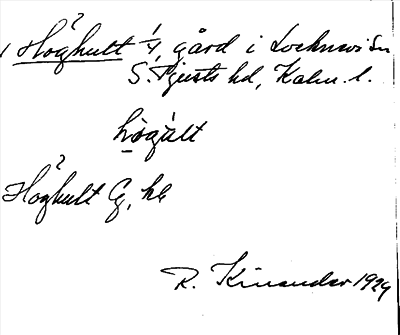 Höghult 1/4, gård i Locknevi sn
S. Tjusts hd, Kalm. l.
högält
Höghult G, hd
R. Kinander 1929